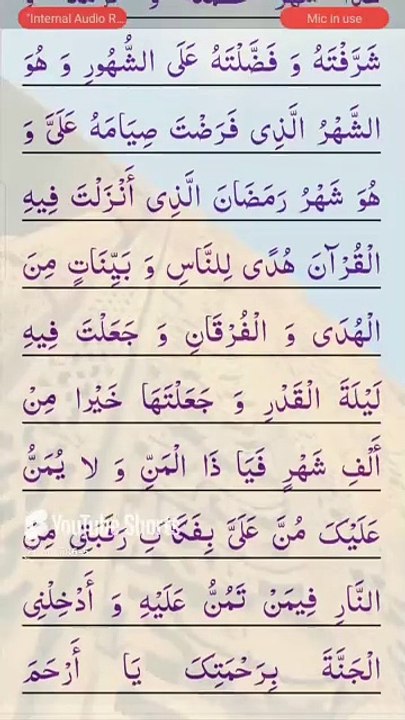 "Internal Audio R...
Mic in use
شَرَّفْتَهُ وَ فَضَّلْتَهُ عَلَى الشُّهُورِ وَ هُوَ
الشَّهْرُ الَّذِى فَرَضْتَ صِيَامَهُ عَلَىَّ وَ
هُوَ شَهْرُ رَمَضَانَ الَّذِى أَنْزَلْتَ فِيهِ
الْقُرْآنَ هُدًى لِلنَّاسِ وَ بَيِّنَاتٍ مِنَ
الْهُدَى وَ الْفُرْقَانِ وَ جَعَلْتَ فِيهِ
لَيْلَةَ الْقَدْرِ وَ جَعَلْتَهَا خَيْرا مِنْ
أَلْفِ شَهْرٍ فَيَا ذَا الْمَنِّ وَ لا يُمَنُّ
عَلَيْكَ مُنَّ عَلَىَّ بِفَكَاكِ رَقَبَتِى مِنَ
YouTube Shorts
النَّارِ فِيمَنْ تَمُنُّ عَلَيْهِ وَ أَدْخِلْنِى
الْجَنَّةَ بِرَحْمَتِكَ يَا أَرْحَمَ